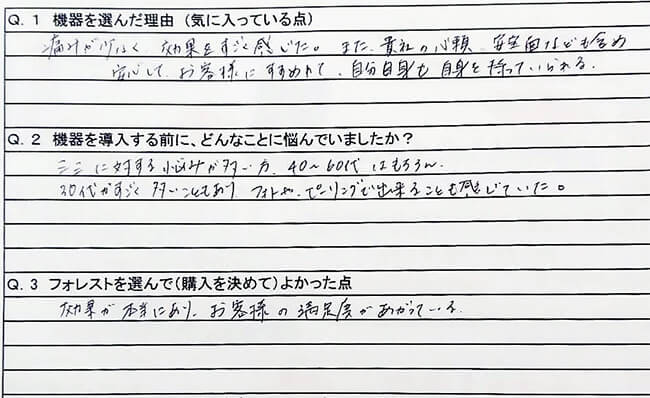 Q. 1 機器を選んだ理由（気に入っている点）
痛みが少なく、効果をすごく感じた。また、貴社の心頼、安全面なども含め
安心して、お客様にすすめれて、自分自身も自身を持っていられる。
Q. 2 機器を導入する前に、どんなことに悩んでいましたか？
シミに対する悩みが多い方、40〜60代はもちろん、
30代がすごく多いこともあり フォトや、ピーリングで出来ることも感じていた。
Q. 3 フォレストを選んで（購入を決めて）よかった点
効果が本当にあり、お客様の満足度があがっている。